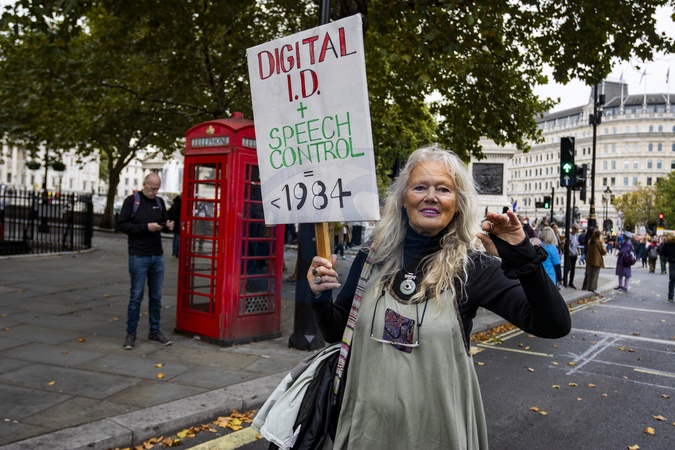 DIGITAL
I.D.
+
SPEECH
CONTROL
=
<1984
TELEPHONE